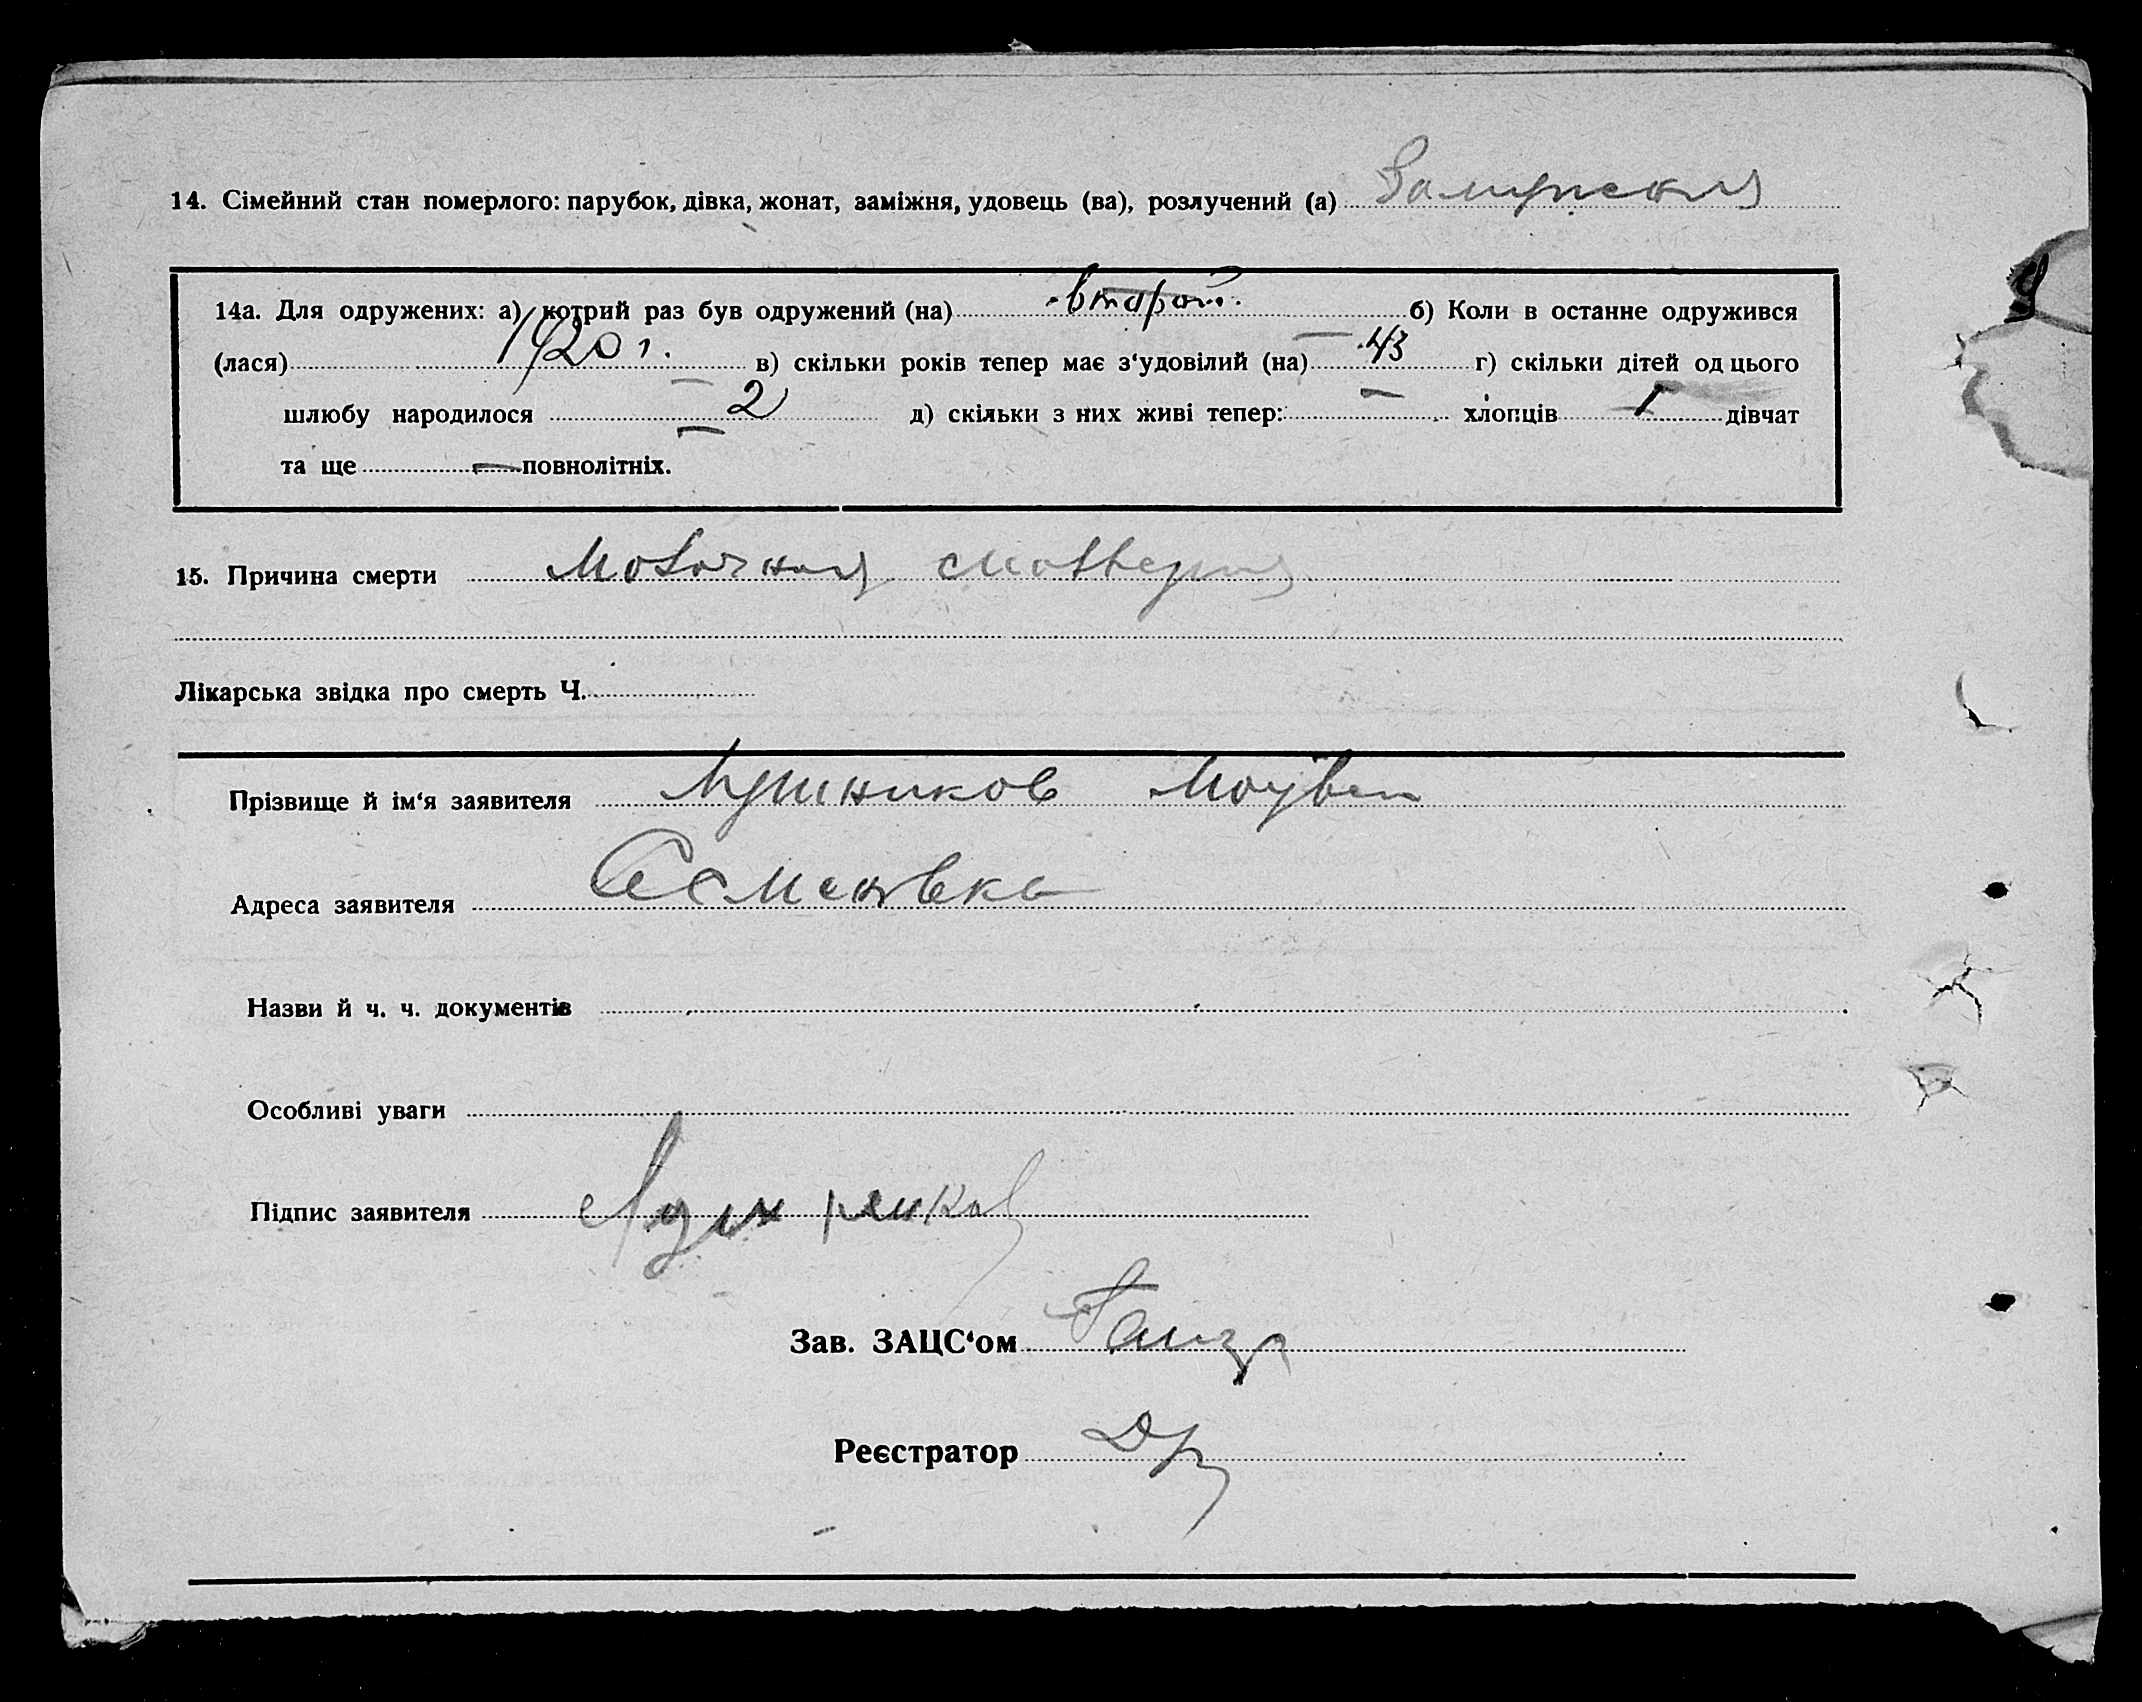 14. Сімейний стан померлого: парубок, дівка, жонат, заміжня, удовець (ва), розлучений (а)
14а. Для одружених: а) котрий раз був одружений (на) второй б) Коли в останне одружився
(лася) 1920 г. в) скільки років тепер має з‘удовілий (на) 43 г) скільки дітей од цього
шлюбу народилося 2 д) скільки з них живі тепер: — хлопців дівчат
та ще — повнолітніх.
15. Причина смерти
Лікарська звідка про смерть Ч.
Прізвище й ім‘я заявителя
Адреса заявителя Семеновка
Назви й ч. ч. документів
Особливі уваги
Підпис заявителя
Зав. ЗАЦС‘ом
Реєстратор